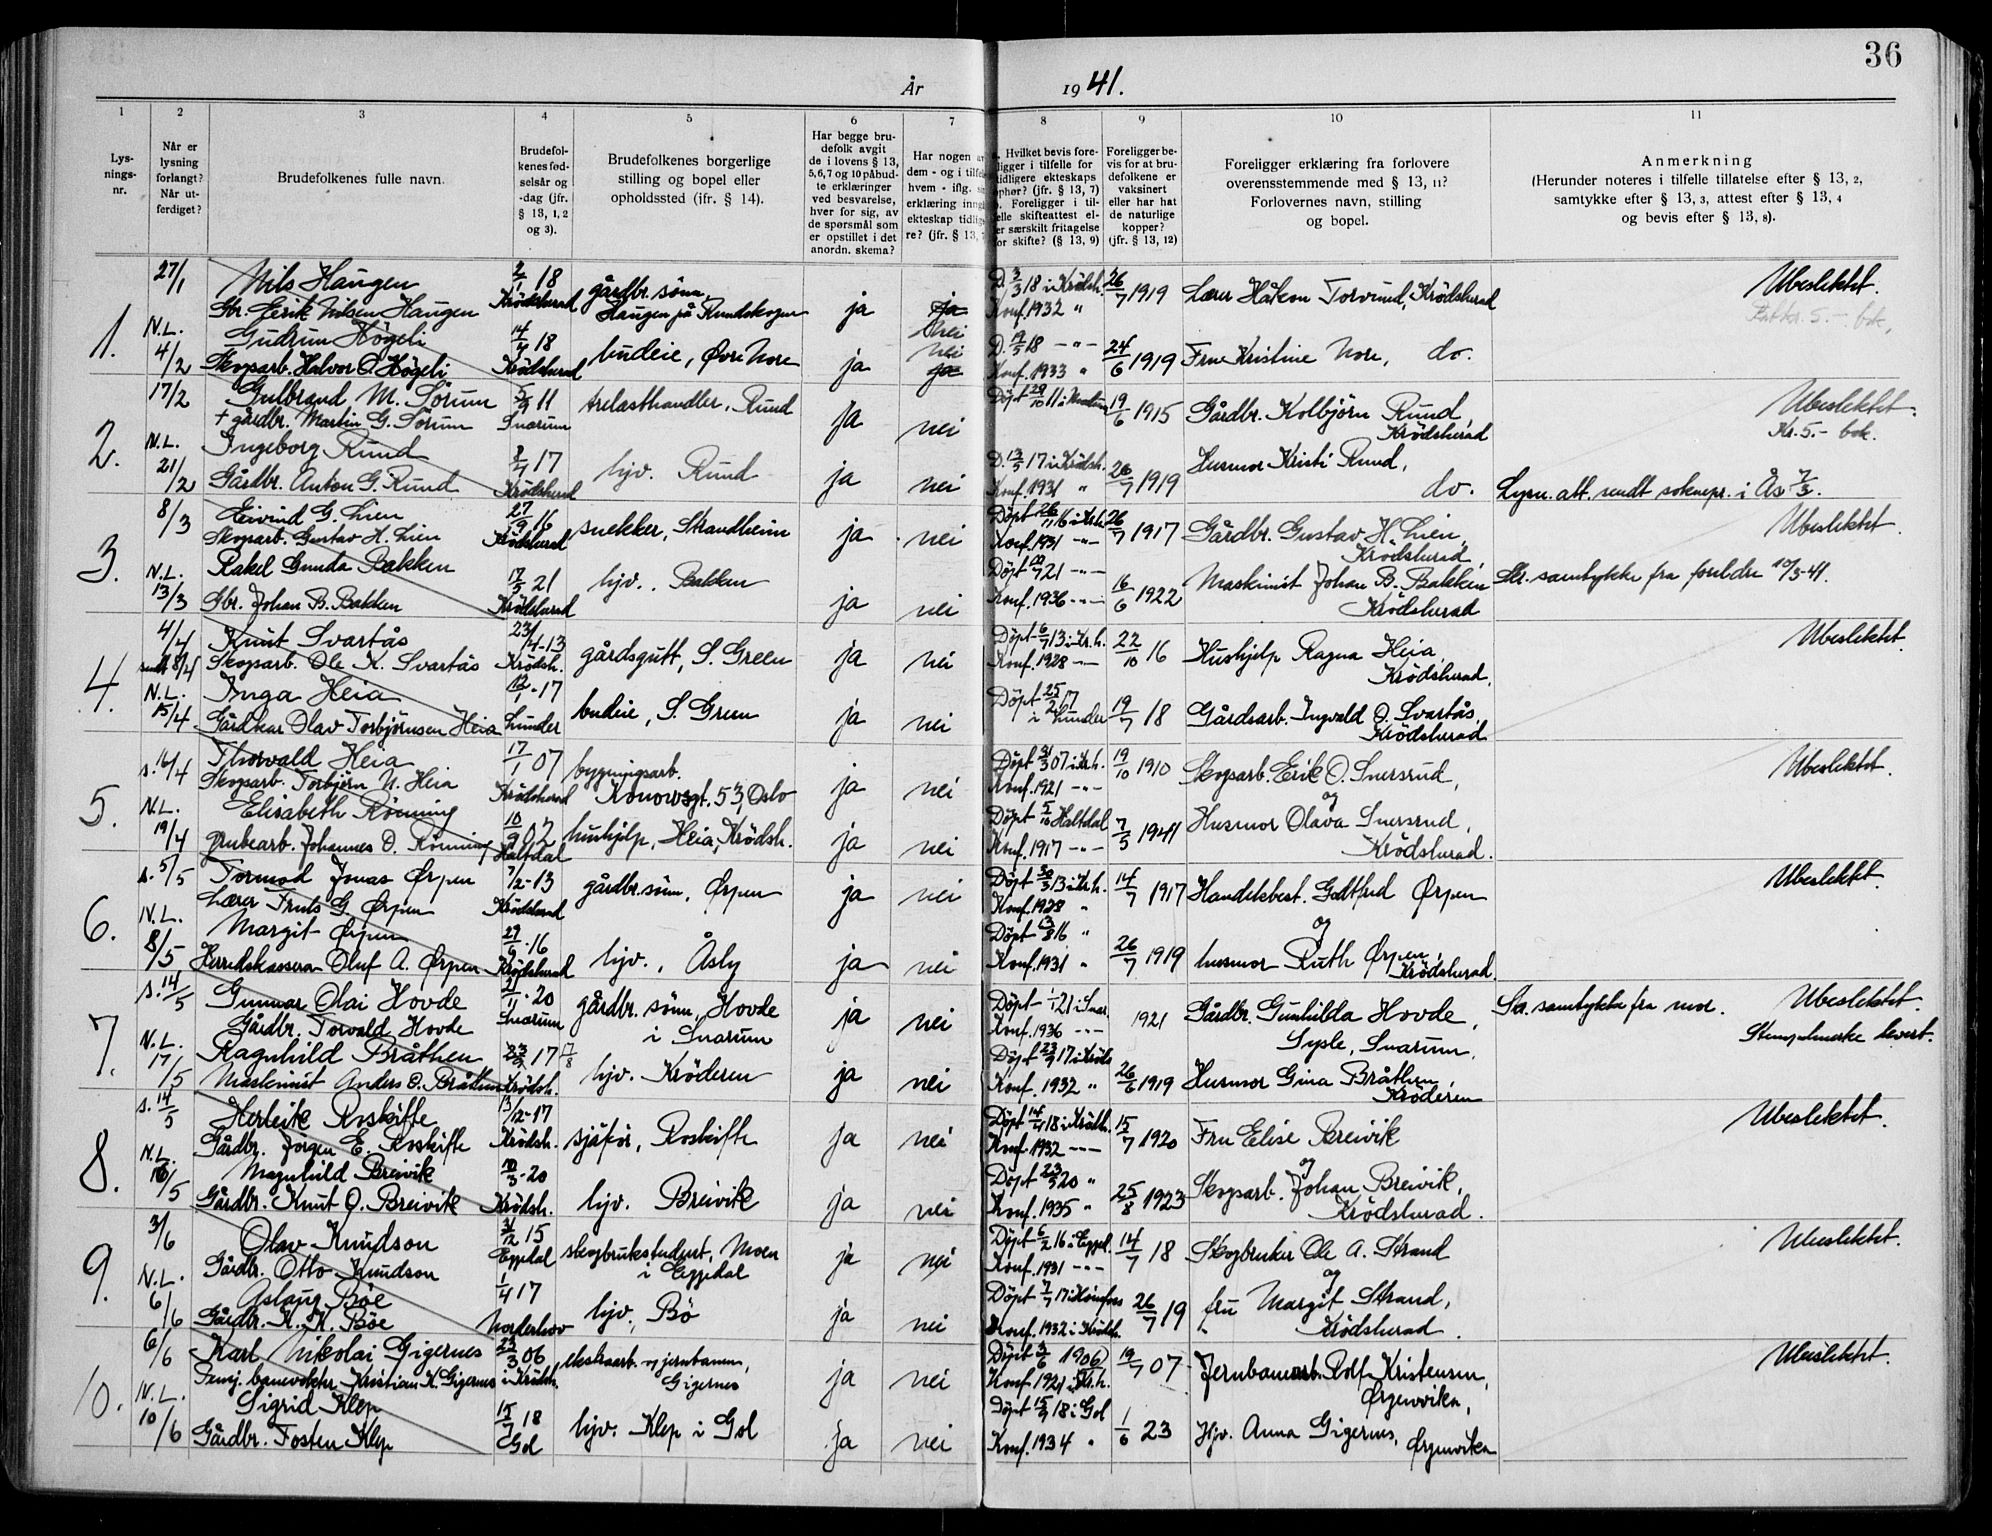 36
År
19 41.
1
2
3
4
5
6
7
8
9
10
11
Lys-
nings-
nr.
Når er
lysning
forlangt?
Når ut-
ferdiget?
Brudefolkenes fulle navn.
Brudefol-
kenes fød-
selsår og
-dag (jfr.
§ 13, 1, 2
og 3).
Brudefolkenes borgerlige
stilling og bopel eller
opholdssted (jfr. § 14).
Har begge bru-
defolk avgit
de i lovens § 13,
5, 6, 7 og 10 påbud-
te erklæringer
ved besvarelse,
hver for sig, av
de spørsmål som
er opstillet i det
anordn. skema?
Har nogen a
dem - og i tilf
hvem - iflg. s
erklæring inng
ekteskap tidlig
re? (jfr. § 13,
Hvilket bevis fore-
ligger i tilfelle for
tidligere ekteskaps
ophør? (jfr. § 13, 7)
Foreligger i til-
elle skifteattest el-
er særskilt fritagelse
or skifte? (§ 13, 9)
Foreligger be-
vis for at bru-
defolkene er
vaksinert
eller har hat
de naturlige
kopper?
(jfr. § 13, 12)
Foreligger erklæring fra forlovere
overensstemmende med § 13, 11?
Forlovernes navn, stilling
og bopel.
Anmerkning
(Herunder noteres i tilfelle tillatelse efter § 13, 2,
samtykke efter § 13, 3, attest efter § 13, 4
og bevis efter § 13, 8).
1. 27/1 Nils Haugen 2/1 18 gårdbr. sønn, D. 3/3 18 i Krödsh. 26/7 1919 Lærer Håkon Torvund, Krödsherad Ubeslektet.
Gbr. Eirik Nilsen Haugen Krödsherad Haugen på Rundskogen ja ja nei Konf. 1932 "
N.L. Gudrun Högeli 14/4 18 budeie, Øvre Nore nei D. 19/5 18 -"- 24/6 1919 Frue Kristine Nore, do.
4/2 Skogsarb. Halvor O. Högeli Krödsherad ja ja Konf. 1933 "
2. 17/2 Gulbrand M. Sörum 5/9 11 trelasthandler, Rund ja nei Döpt 29/10 11 i Modum 19/6 1915 Gårdbr. Kolbjörn Rund, Krödsherad Ubeslektet.
+ gårdbr. Martin G. Sörum Snarum Kr. 5.- bet.
N.L. Ingeborg Rund 8/4 17 hjv. Rund D. 13/5 17 i Krödsh. 26/7 1919 Husmor Kristi Rund,
21/2 Gårdbr. Anton G. Rund Krödsherad ja nei Konf. 1931 " do. Lysn. att. sendt sognepr. i Ås 7/3.
3. 8/3 Eivind G. Lien 27/9 16 snekker, Strandheim ja nei Döpt 26/11 16 i Kr.h. 26/7 1917 Gårdbr. Gustav H. Lien, Ubeslektet.
Skogsarb. Gustav H. Lien Krödsherad Konf. 1931 -"- Krödsherad
N.L. Rakel Gunda Bakken 17/5 21 hjv., Bakken Döpt 10/7 21 -"- 16/6 1922 Maskinist Johan B. Bakken Skr. samtykke fra foreldre 10/3-41.
13/3 Gbr. Johan B. Bakken Krödsherad ja nei Konf. 1936 -"- Krödsherad
4. 4/4 Knut Svartås 23/4-13 gårdsgutt, S. Green ja nei Döpt 6/7 13 i Kr.h. 22/10 16 Hushjelp Ragna Heia, Ubeslektet.
Skogsarb. Ole K. Svartås Krödsh. Konf. 1928 -"- Krödsherad.
N.L. Inga Heia 12/1-17 budeie, S. Green Döpt 25/2 17 19/7 18 Gårdsarb. Ingvald O. Svartås,
15/4 Gårdkar Olav Torbjörnsen Heia Lunder ja nei i Lunder Krödsherad
5. s. 16/4 Thorvald Heia 17/1 07 bygningsarb. ja nei Döpt 31/3 07 i Kr.h. 19/10 1910 Skogsarb. Erik O. Snersrud, Ubeslektet.
Skogsarb. Torbjörn N. Heia Krödsherad Konowsgt. 53, Oslo Konf. 1921 -"- og
N.L. Elisabeth Rönning 10/9 02 hushjelp, Heia, Krödsh. Döpt 5/10 Haltdal 7/5 1941 Husmor Olava Snersrud,
19/4 grubearb. Johannes O. Rönning Haltdal ja nei Konf. 1917 -"- Krödsherad.
6. s. 5/5 Tormod Jonas Ørpen 7/2-13 gårdbr. sønn, Ørpen ja nei Döpt 30/3 13 i Kr.h. 14/7 1917 Handelsbest. Godtfred Ørpen Ubeslektet.
Lærer Truls G. Ørpen Krödsherad Konf. 1928 " og
N.L. Margit Ørpen 29/6-16 hjv., Åsly Döpt 13/8 16 "
8/5 Herredskasserer Oluf A. Ørpen Krödsherad ja nei Konf. 1931 " 26/7 1919 husmor Ruth Ørpen, Krödsherad.
7. s. 14/5 Gunnar Olai Hovde 21/11-20 gårdbr. sønn, Hovde ja nei Döpt 1/1 21 i Snar. 1921 Gårdbr. Gunhilda Hovde, Skr. samtykke fra mor. Ubeslektet.
Gårdbr. Torvald Hovde Snarum i Snarum Konf. 1936 -"- Sysle, Snarum. Stempelmerke levert.
N.L. Ragnhild Bråthen 17 hjv. Kröderen Döpt 23/9 17 i Kröds
17/5 Maskinist Anders O. Bråthen Krödsh. ja nei Konf. 1932 " 26/6 1919 Husmor Gina Bråthen, Kröderen
8. s. 14/5 Herleik Roskifte 13/12-17 sjåför, Roskifte ja nei Döpt 14/4 18 i Krödh. 15/7 1920 Fru Elise Breivik Ubeslektet.
Gårdbr. Jörgen E. Roskifte Krödsh. Konf. 1932 -"- og
N.L. Magnhild Breivik 10/3-20 hjv. Breivik Döpt 23/5 20 " Skogsarb. Johan Breivik,
18/5 Gårdbr. Knut O. Breivik Krödsh. ja nei Konf. 1935 " 25/8 1923 Krödsherad.
9. 3/6 Olav Knudson 31/12 15 skogbrukstudent, Moen ja nei Döpt 6/2 16 i Eggedal 14/7 18 Skogbruker Ole A. Strand Ubeslektet.
Gårdbr. Otto Knudson Eggedal i Eggedal Konf. 1931 -"- og
N.L. Aslaug Böe 1/4 17 hjv., Bö Döpt 7/7 17 i Hönefoss 26/7 19 fru Margit Strand,
6/6 Gårdbr. K. K. Böe Norderhov ja nei Konf. 1932 i Krödsh. Krödsherad.
10. 6/6 Karl Nikolai Gigernes 23/3 06 ekstraarb. v jernbanen, ja nei Döpt 3/6 1906 19/7 07 Jernbanearb. Rolf Kristensen, Ubeslektet.
Pensj. banevokter Kristian K. Gigernes i Krödsh. Gigernes Konf. 1921 i Kr.h. Ørgenvika,
N.L. Sigrid Klep 15/7 18 hjv. Klep i Gol Döpt 15/9 18 i Gol 1/6 23 Hjv. Anna Gigernes, Ørgenvika
10/6 Gårdbr. Tosten Klep Gol ja nei Konf. 1934 "